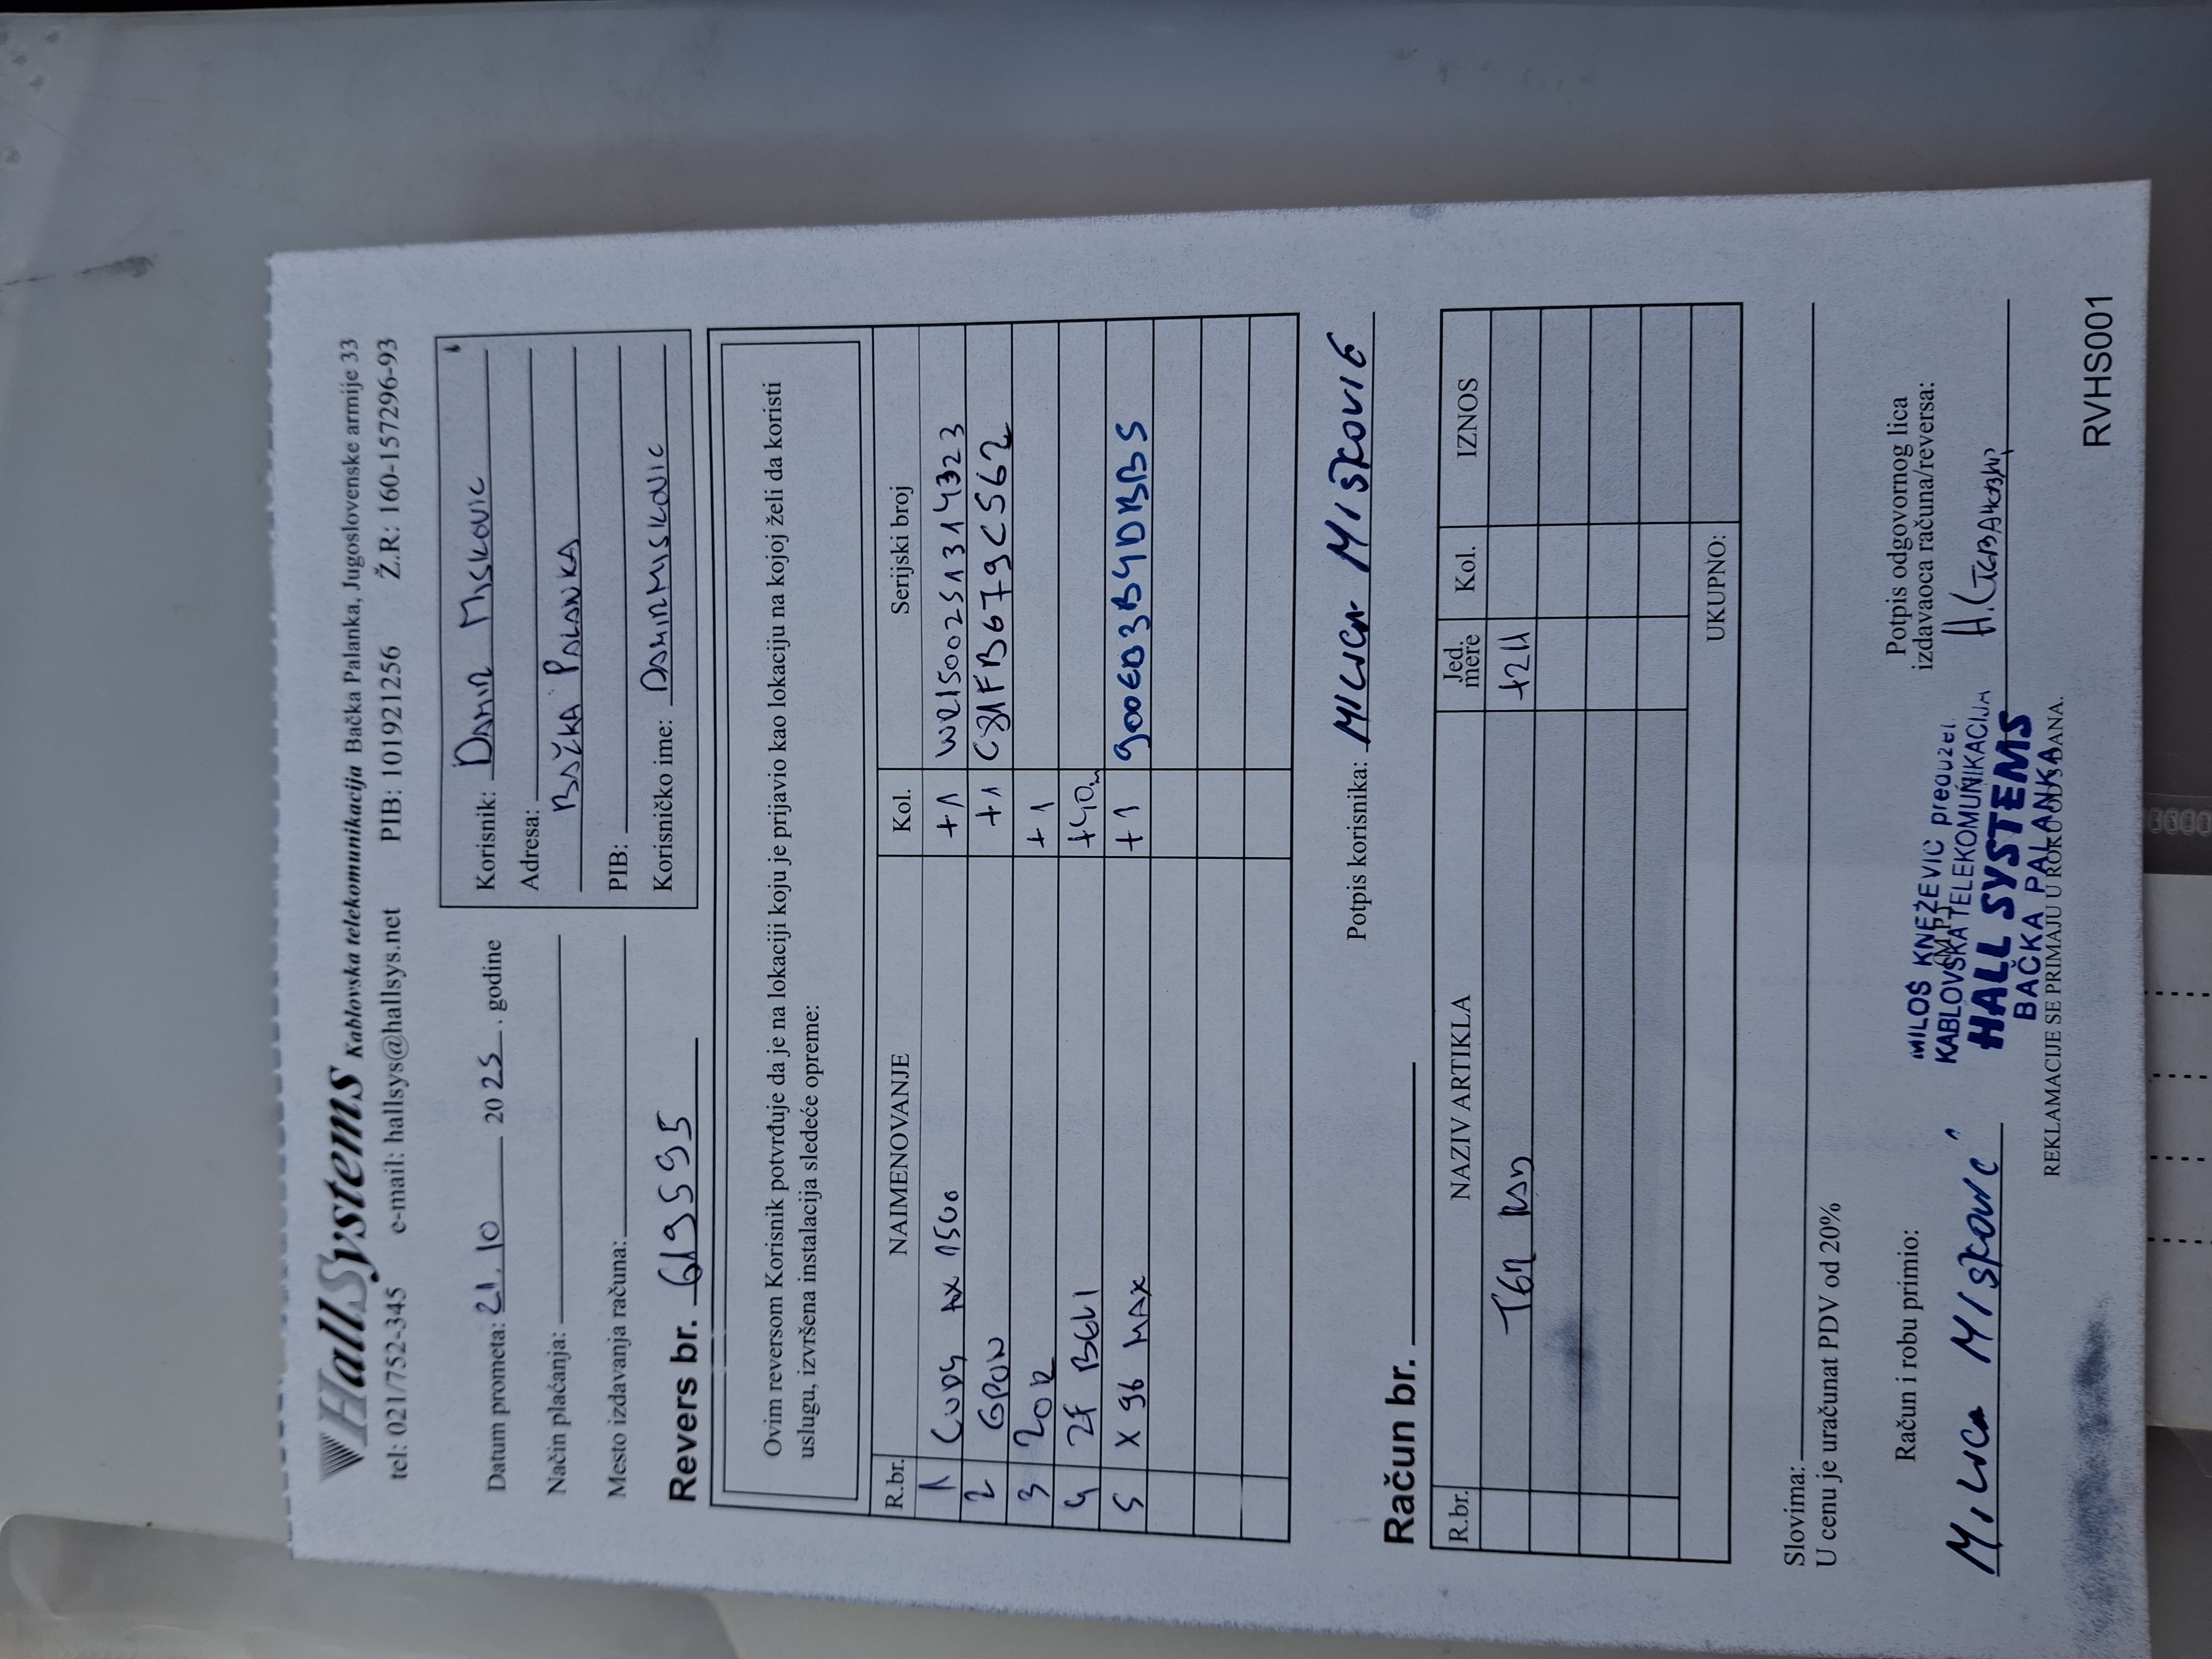 HallSystems Kablovska telekomunikacija Bačka Palanka, Jugoslovenske armije 33
tel: 021/752-345 e-mail: hallsys@hallsys.net PIB: 101921256 Ž.R: 160-157296-93
Datum prometa: 21.10 2025. godine
Način plaćanja:
Mesto izdavanja računa:
Korisnik: DAMIR MISKOVIC
Adresa:
BAČKA PALANKA
PIB:
Korisničko ime: DAMIRMISKOVIC
Revers br. 619595
Ovim reversom Korisnik potvrđuje da je na lokaciji koju je prijavio kao lokaciju na kojoj želi da koristi
uslugu, izvršena instalacija sledeće opreme:
R.br. NAIMENOVANJE Kol. Serijski broj
1 CUDY AX 1500 +1 WR1500251314323
2 GPON +1 C81FB679C562
3 ZOR +1
4 2F B6L1 +40m
5 X96 MAX +1 900EB3B4DBB5
Potpis korisnika: MILICA MIŠKOVIĆ
Račun br.
R.br. NAZIV ARTIKLA Jed. mere Kol. IZNOS
+2M
UKUPNO:
Slovima:
U cenu je uračunat PDV od 20%
Račun i robu primio:
MILICA MIŠKOVIĆ
MILOŠ KNEŽEVIĆ preduzet
KABLOVSKA TELEKOMUNIKACIJA
HALL SYSTEMS
BAČKA PALANKA
Potpis odgovornog lica
izdavaoca računa/reversa:
REKLAMACIJE SE PRIMAJU U ROKU OD 8 DANA.
RVHS001